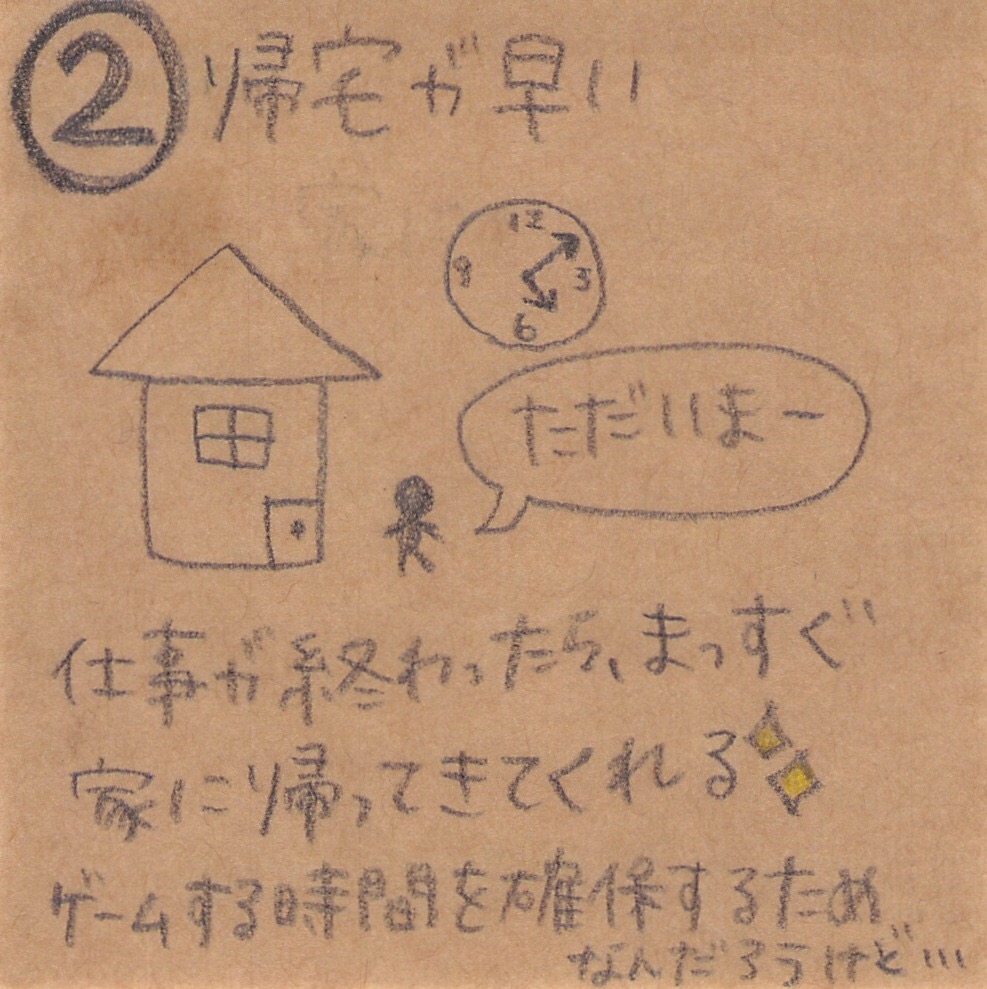 ② 帰宅が早い
12
9 3
6
ただいまー
仕事が終わったら、まっすぐ
家に帰ってきてくれる
ゲームする時間を確保するため
なんだろうけど…